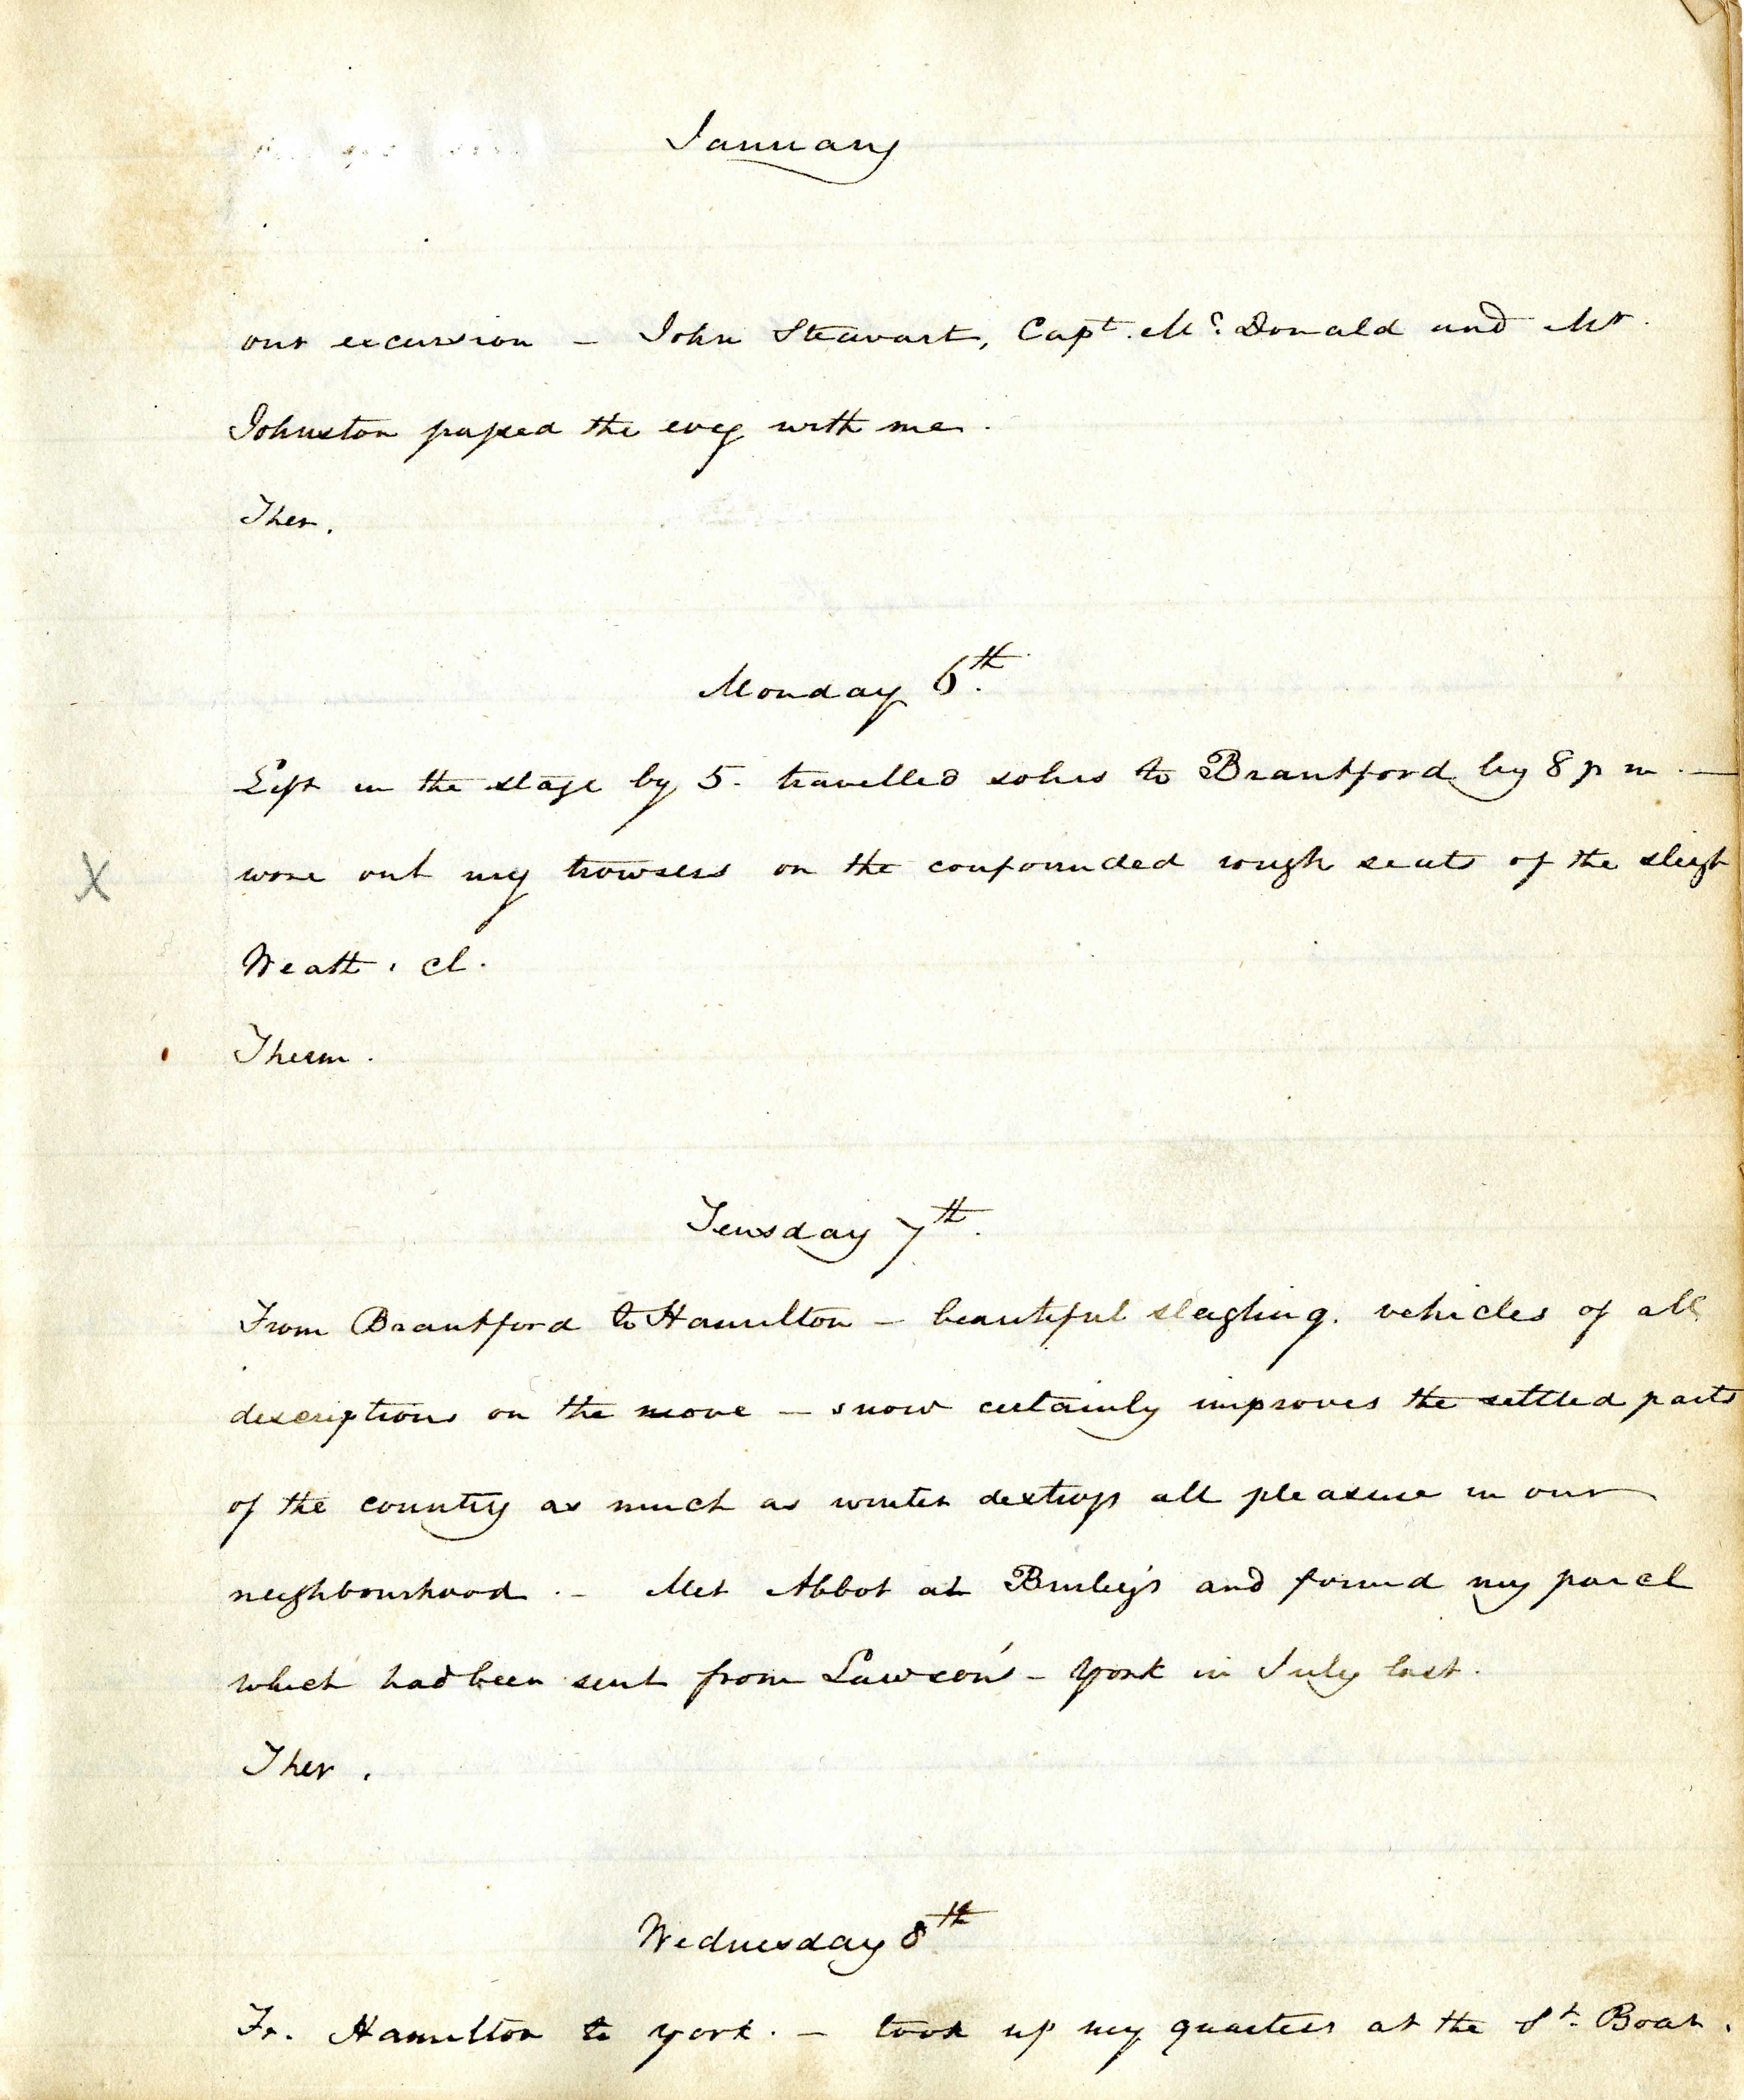 January
our excursion – John Stewart, Capt. Mc. Donald and Mr.
Johnston passed the eveg with me.
Ther.
Monday 6th.
Left in the stage by 5. travelled solus to Brantford by 8 p m. –
wore out my trowsers on the confounded rough seats of the sleigh
X
Weath. cl.
Therm.
Teusday 7th.
From Brantford to Hamilton – beautiful sleighing. vehicles of all
descriptions on the move – snow certainly improves the settled parts
of the country as much as winter destroys all pleasure in our
neighbourhood. – Met Abbot at Burley's and found my parcel
which had been sent from Lawson's – York in July last.
Ther.
Wednesday 8th
Fr. Hamilton to York. – took up my quarters at the St. Boat.